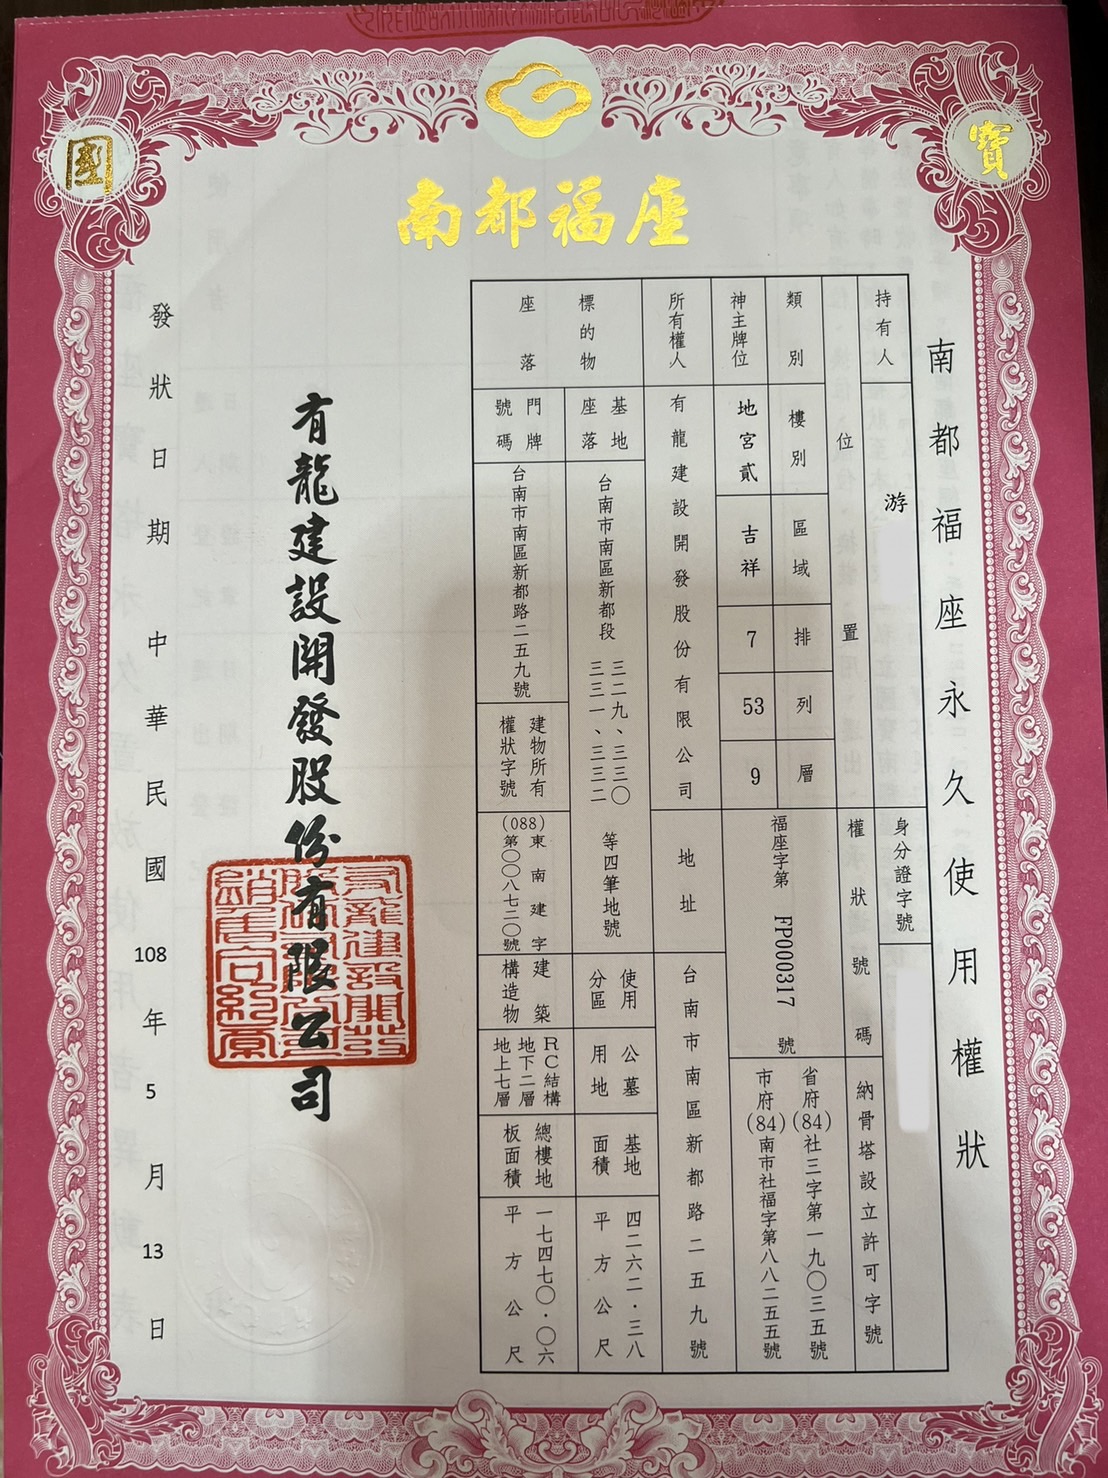 國
寶
南都福座
南都福座永久使用權狀
持有人
游
身分證字號
位置
權狀號碼
納骨塔設立許可字號
類別
樓別
區域
排
列
層
福座字第 FP000317 號
省府(84)社三字第一九〇三五號
市府(84)南市社福字第八八二五五號
神主牌位
地宮貳
吉祥
7
53
9
所有權人
有龍建設開發股份有限公司
地址
台南市南區新都路二五九號
標的物
座落
基地
座落
台南市南區新都段
三二九、三三〇
三三一、三三二
等四筆地號
使用
分區
公墓
用地
基地
面積
四二六二．三八
平方公尺
門牌
號碼
台南市南區新都路二五九號
建物所有
權狀字號
(088)東南建字
第〇〇八七二〇號
建築
構造物
RC結構
地下二層
地上七層
總樓地
板面積
一七四七〇．〇六
平方公尺
有龍建設開發股份有限公司
發狀日期 中華民國 108 年 5 月 13 日